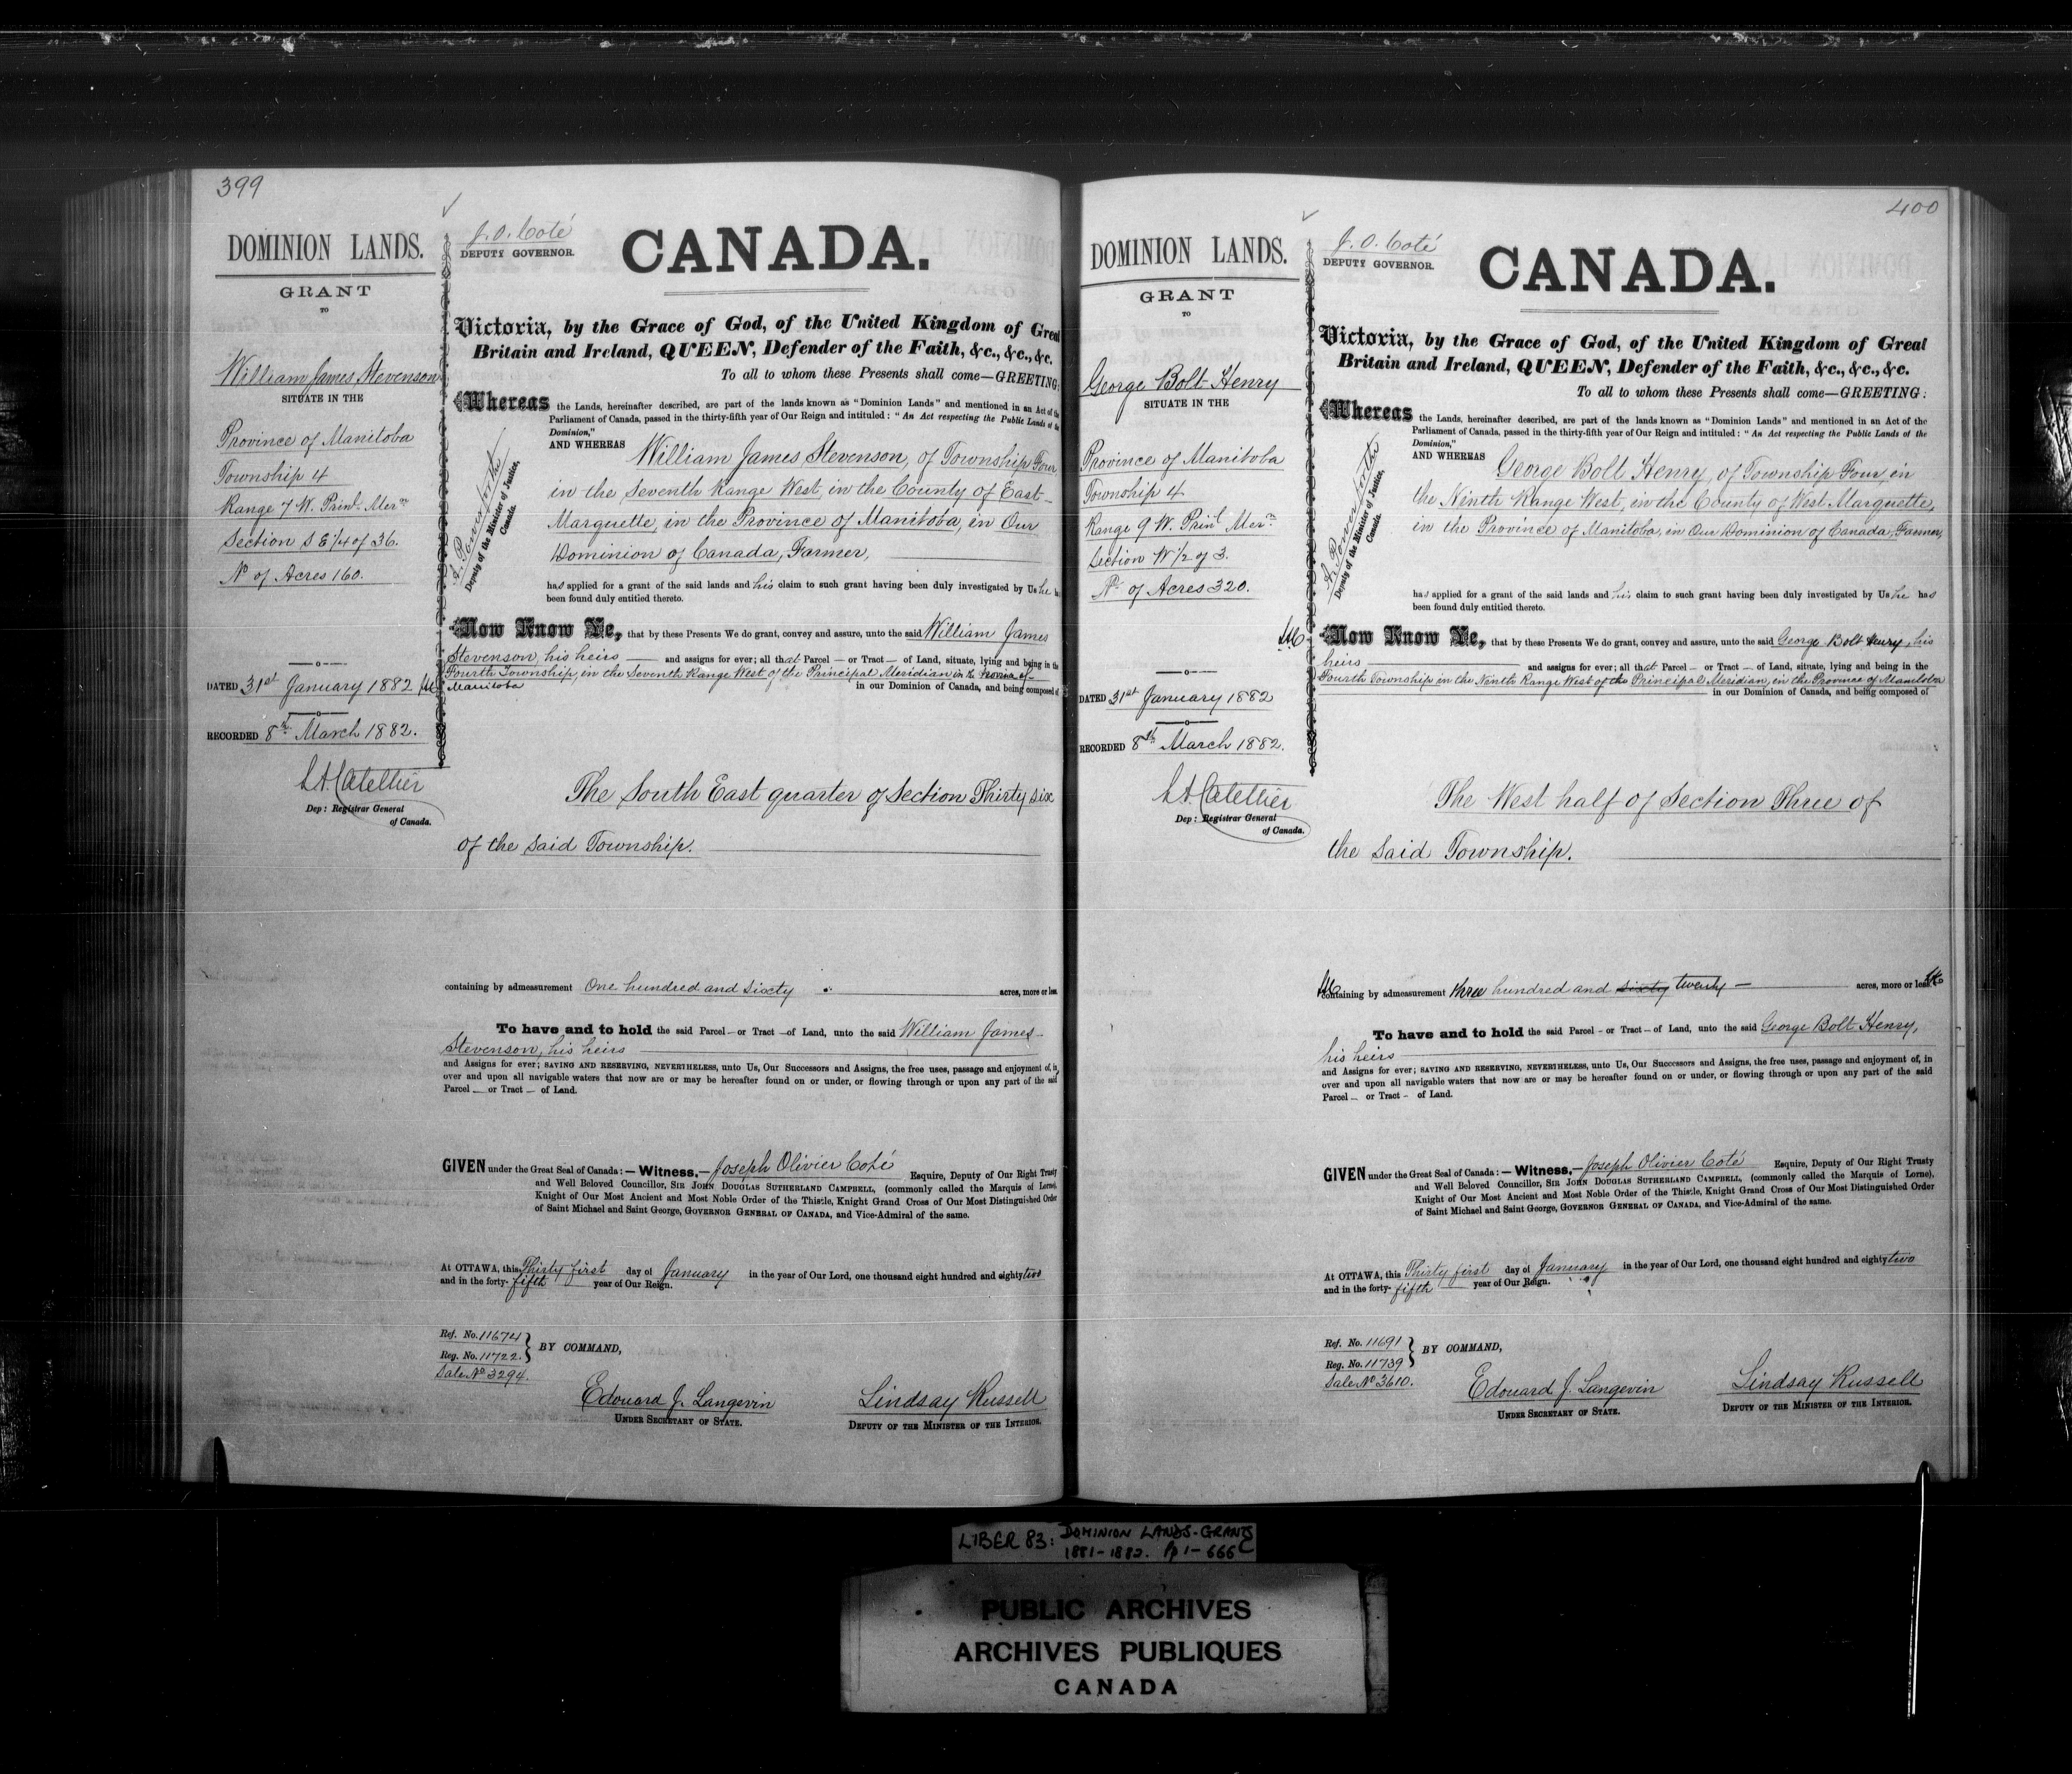 399
DOMINION LANDS.
GRANT
TO
William James Stevenson
SITUATE IN THE
Province of Manitoba
Township 4
Range 7 W. Prinl. Mern
Section S E 1/4 of 36.
No of Acres 160.
DATED 31st January 1882
RECORDED 8th March 1882.
L.A. Catellier
Dep: Registrar General
of Canada.
J. O. Coté
DEPUTY GOVERNOR.
CANADA.
Victoria, by the Grace of God, of the United Kingdom of Great
Britain and Ireland, QUEEN, Defender of the Faith, &c., &c., &c.
To all to whom these Presents shall come—GREETING:
A. Power for the
Deputy of the Minister of Justice,
Canada.
Whereas the Lands, hereinafter described, are part of the lands known as "Dominion Lands" and mentioned in an Act of the
Parliament of Canada, passed in the thirty-fifth year of Our Reign and intituled: "An Act respecting the Public Lands of the
Dominion,"
AND WHEREAS William James Stevenson, of Township Four,
in the Seventh Range West, in the County of East
Marquette, in the Province of Manitoba, in Our
Dominion of Canada, Farmer,
has applied for a grant of the said lands and his claim to such grant having been duly investigated by Us he has
been found duly entitled thereto.
Now Know Ye, that by these Presents We do grant, convey and assure, unto the said William James
Stevenson, his heirs — and assigns for ever; all that Parcel — or Tract — of Land, situate, lying and being in the
Fourth Township, in the Seventh Range West of the Principal Meridian in the Province of
Manitoba in our Dominion of Canada, and being composed of
The South East quarter of Section Thirty six
of the said Township.
containing by admeasurement One hundred and sixty acres, more or less.
To have and to hold the said Parcel — or Tract — of Land, unto the said William James
Stevenson, his heirs
and Assigns for ever; SAVING AND RESERVING, NEVERTHELESS, unto Us, Our Successors and Assigns, the free uses, passage and enjoyment of, in,
over and upon all navigable waters that now are or may be hereafter found on or under, or flowing through or upon any part of the said
Parcel — or Tract — of Land.
GIVEN under the Great Seal of Canada:—Witness,—Joseph Olivier Coté Esquire, Deputy of Our Right Trusty
and Well Beloved Councillor, SIR JOHN DOUGLAS SUTHERLAND CAMPBELL, (commonly called the Marquis of Lorne),
Knight of Our Most Ancient and Most Noble Order of the Thistle, Knight Grand Cross of Our Most Distinguished Order
of Saint Michael and Saint George, GOVERNOR GENERAL OF CANADA, and Vice-Admiral of the same.
At OTTAWA, this Thirty first day of January in the year of Our Lord, one thousand eight hundred and eighty two
and in the forty-fifth year of Our Reign.
Ref. No. 11674
Reg. No. 11722.
Sale No 3294.
BY COMMAND,
Edouard J. Langevin
UNDER SECRETARY OF STATE.
Lindsay Russell
DEPUTY OF THE MINISTER OF THE INTERIOR.
400
DOMINION LANDS.
GRANT
TO
George Bolt Henry
SITUATE IN THE
Province of Manitoba
Township 4
Range 9 W. Prinl Mern.
Section W 1/2 of 3.
No. of Acres 320.
DATED 31st January 1882
RECORDED 8th March 1882.
L.A. Catellier
Dep: Registrar General
of Canada.
J. O. Coté
DEPUTY GOVERNOR.
CANADA.
Victoria, by the Grace of God, of the United Kingdom of Great
Britain and Ireland, QUEEN, Defender of the Faith, &c., &c., &c.
To all to whom these Presents shall come—GREETING:
A. Power for the
Deputy of the Minister of Justice,
Canada.
Whereas the Lands, hereinafter described, are part of the lands known as "Dominion Lands" and mentioned in an Act of the
Parliament of Canada, passed in the thirty-fifth year of Our Reign and intituled: "An Act respecting the Public Lands of the
Dominion,"
AND WHEREAS George Bolt Henry, of Township Four, in
the Ninth Range West, in the County of West Marquette,
in the Province of Manitoba, in Our Dominion of Canada, Farmer,
has applied for a grant of the said lands and his claim to such grant having been duly investigated by Us he has
been found duly entitled thereto.
Now Know Ye, that by these Presents We do grant, convey and assure, unto the said George Bolt Henry, his
heirs — and assigns for ever; all that Parcel — or Tract — of Land, situate, lying and being in the
Fourth Township in the Ninth Range West of the Principal Meridian, in the Province of Manitoba
in our Dominion of Canada, and being composed of
The West half of Section Three of
the said Township.
containing by admeasurement three hundred and sixty twenty — acres, more or less.
To have and to hold the said Parcel - or Tract - of Land, unto the said George Bolt Henry,
his heirs
and Assigns for ever; SAVING AND RESERVING, NEVERTHELESS, unto Us, Our Successors and Assigns, the free uses, passage and enjoyment of, in
over and upon all navigable waters that now are or may be hereafter found on or under, or flowing through or upon any part of the said
Parcel — or Tract - of Land.
GIVEN under the Great Seal of Canada:—Witness,—Joseph Olivier Coté Esquire, Deputy of Our Right Trusty
and Well Beloved Councillor, SIR JOHN DOUGLAS SUTHERLAND CAMPBELL, (commonly called the Marquis of Lorne),
Knight of Our Most Ancient and Most Noble Order of the Thistle, Knight Grand Cross of Our Most Distinguished Order
of Saint Michael and Saint George, GOVERNOR GENERAL OF CANADA, and Vice-Admiral of the same.
At OTTAWA, this Thirty first day of January in the year of Our Lord, one thousand eight hundred and eighty two
and in the forty-fifth year of Our Reign.
Ref. No. 11691
Reg. No. 11739
Sale No 3610.
BY COMMAND,
Edouard J. Langevin
UNDER SECRETARY OF STATE.
Lindsay Russell
DEPUTY OF THE MINISTER OF THE INTERIOR.
LIBER 83: DOMINION LANDS-GRANTS
1881-1882. Pp 1-666
PUBLIC ARCHIVES
ARCHIVES PUBLIQUES
CANADA